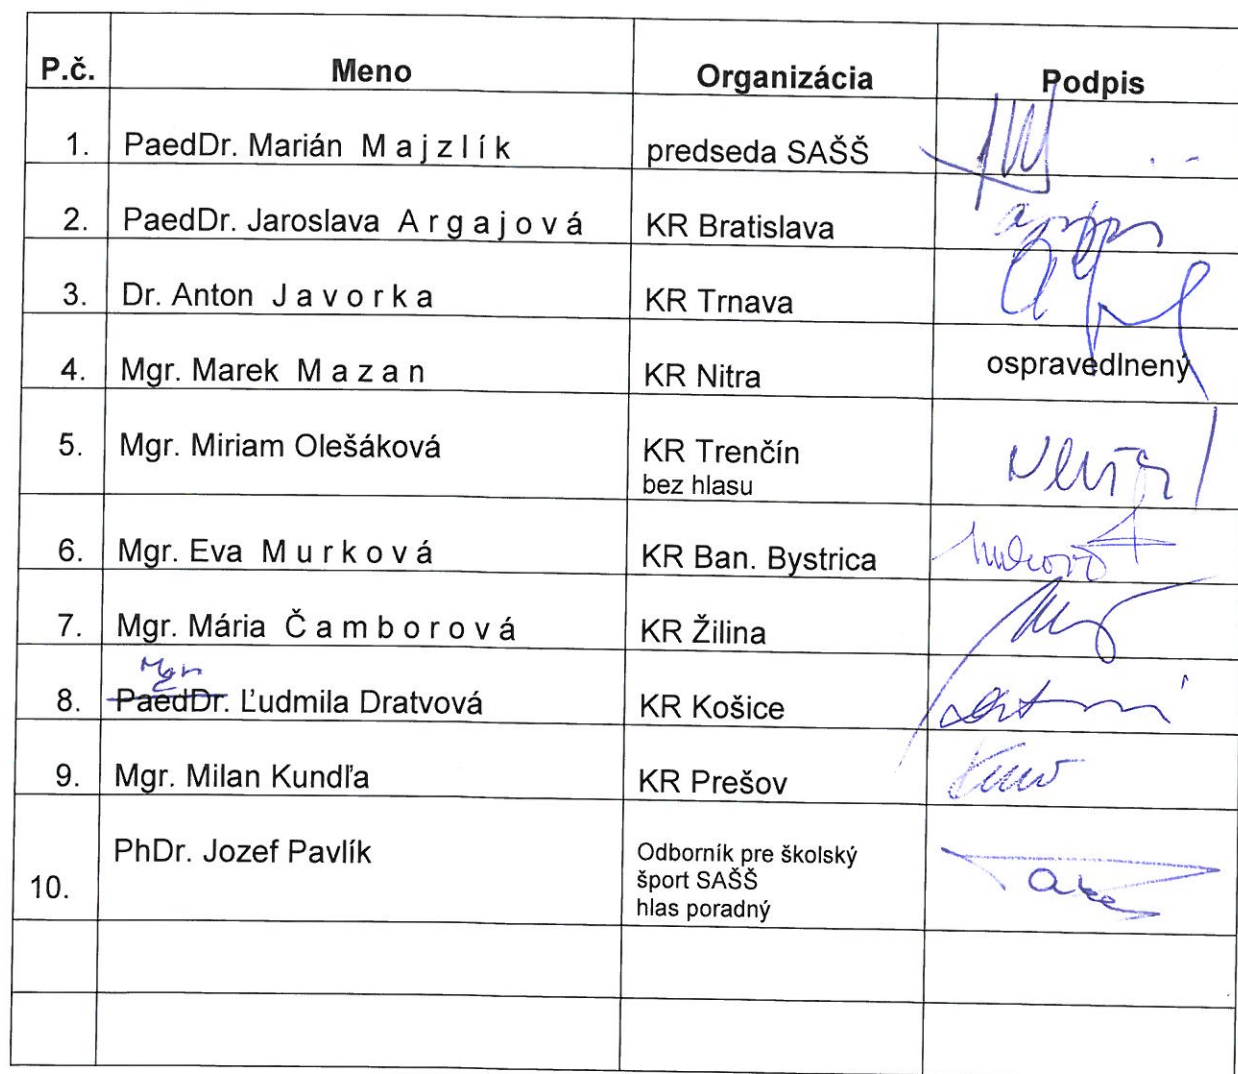 P.č. Meno Organizácia Podpis
1. PaedDr. Marián M a j z l í k predseda SAŠŠ
2. PaedDr. Jaroslava A r g a j o v á KR Bratislava
3. Dr. Anton J a v o r k a KR Trnava
4. Mgr. Marek M a z a n KR Nitra ospravedlnený
5. Mgr. Miriam Olešáková KR Trenčín
bez hlasu
6. Mgr. Eva M u r k o v á KR Ban. Bystrica
7. Mgr. Mária Č a m b o r o v á KR Žilina
Mgr
8. PaedDr. Ľudmila Dratvová KR Košice
9. Mgr. Milan Kundľa KR Prešov
10. PhDr. Jozef Pavlík Odborník pre školský
šport SAŠŠ
hlas poradný